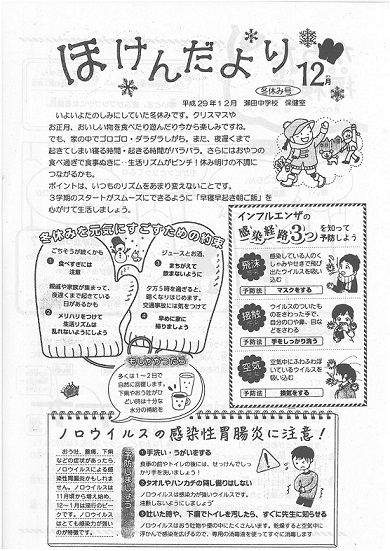 ほけんだより 12月
冬休み号
平成29年12月 瀬田中学校 保健室
いよいよおたのしみにしていた冬休みです。クリスマスや
お正月、おいしい物を食べたり遊んだり今から楽しみですね。
でも、家の中でゴロゴロ・ダラダラしがち。また、夜遅くまで
起きてしまい寝る時間・起きる時間がバラバラ。さらにはおやつの
食べ過ぎで食事ぬきに…生活リズムがピンチ!休み明けの不調に
つながるかも。
ポイントは、いつものリズムをあまり変えないことです。
3学期のスタートがスムーズにできるように「早寝早起き朝ご飯」を
心がけて生活しましょう。
冬休みを元気にすごすための約束
ごちそうが続くかも
❶ 食べすぎには
注意
親戚や家族が集まって、
夜遅くまで起きている
日があるかも
❷ メリハリをつけて
生活リズムは
乱れないようにしよう
ジュースとお酒、
❸ まちがえて
飲まないように
夕方5時を過ぎると、
暗くなりはじめます。
交通事故には気をつけて
❹ 早めに家に
帰りましょう
インフルエンザの
感染経路3つを知って
予防しよう
飛沫
感染している人のく
しゃみやせきで飛び
出たウイルスを吸い
込む
予防法 マスクをする
接触
ウイルスのついたも
のをさわった手で、
自分の口や鼻、目な
どをさわる
予防法 手をしっかり洗う
空気
空気中にふわふわ浮
いているウイルスを
吸い込む
予防法 換気をする
もしかかったら
多くは1〜2日で
自然に回復します。
下痢やおう吐がひ
どい時は十分な
水分の補給を
ノロウイルスの感染性胃腸炎に注意!
おう吐、腹痛、下痢
などの症状があったら、
ノロウイルスによる感
染性胃腸炎かもしれま
せん。ノロウイルスは
11月頃から増え始め、
12〜1月は流行のピー
クです。ノロウイルス
はとても感染力が強い
のが特徴です。
予防しましょう
❶手洗い・うがいをする
食事の前やトイレの後には、せっけんでしっ
かり手を洗いましょう!
❷タオルやハンカチの貸し借りはしない
ノロウイルスは感染力が強いウイルスです。
接触しないようにしましょう
❸吐いた時や、下痢でトイレを汚したら、すぐに先生に知らせる
ノロウイルスはおう吐物や便の中にたくさんいます。乾燥すると空気中に
浮かんで感染を広げるので、専用の消毒液を使ってすぐに消毒します